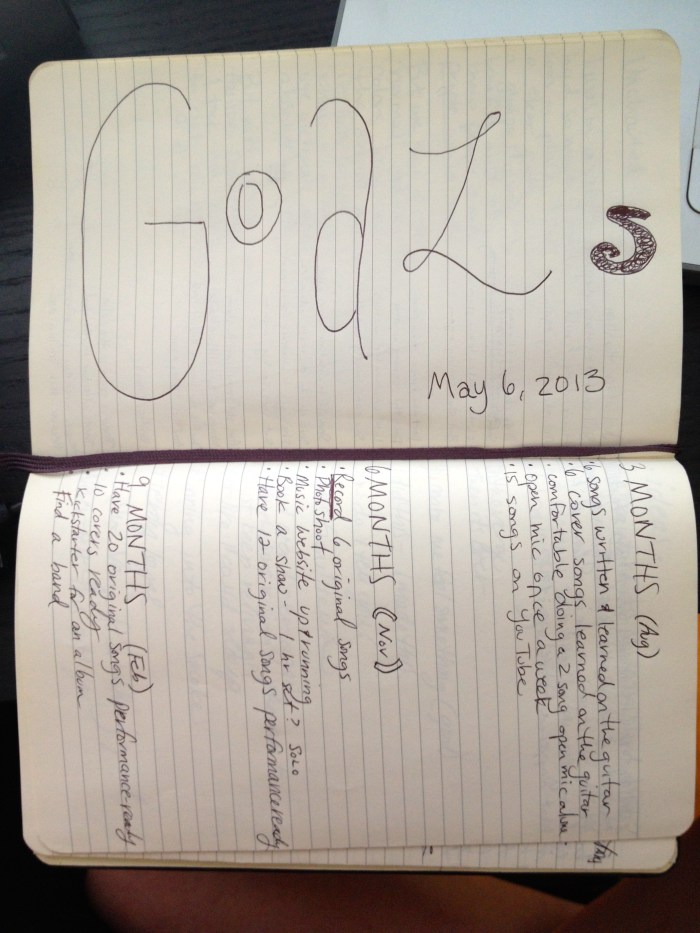 GoaLS
May 6, 2013
3 MONTHS (Aug)
• 6 songs written & learned on the guitar
• 6 cover songs learned on the guitar
• comfortable doing a 2 song open mic alone.
• open mic once a week
• 15 songs on YouTube
6 MONTHS (Nov)
• Record 6 original songs
• Photo Shoot
• Music website up & running
• Book a show - 1 hr set? SOLO
• Have 12 original songs performance ready
9 MONTHS (Feb)
• Have 20 original songs performance-ready
• 10 covers ready
• kickstarter for an album
• Find a band